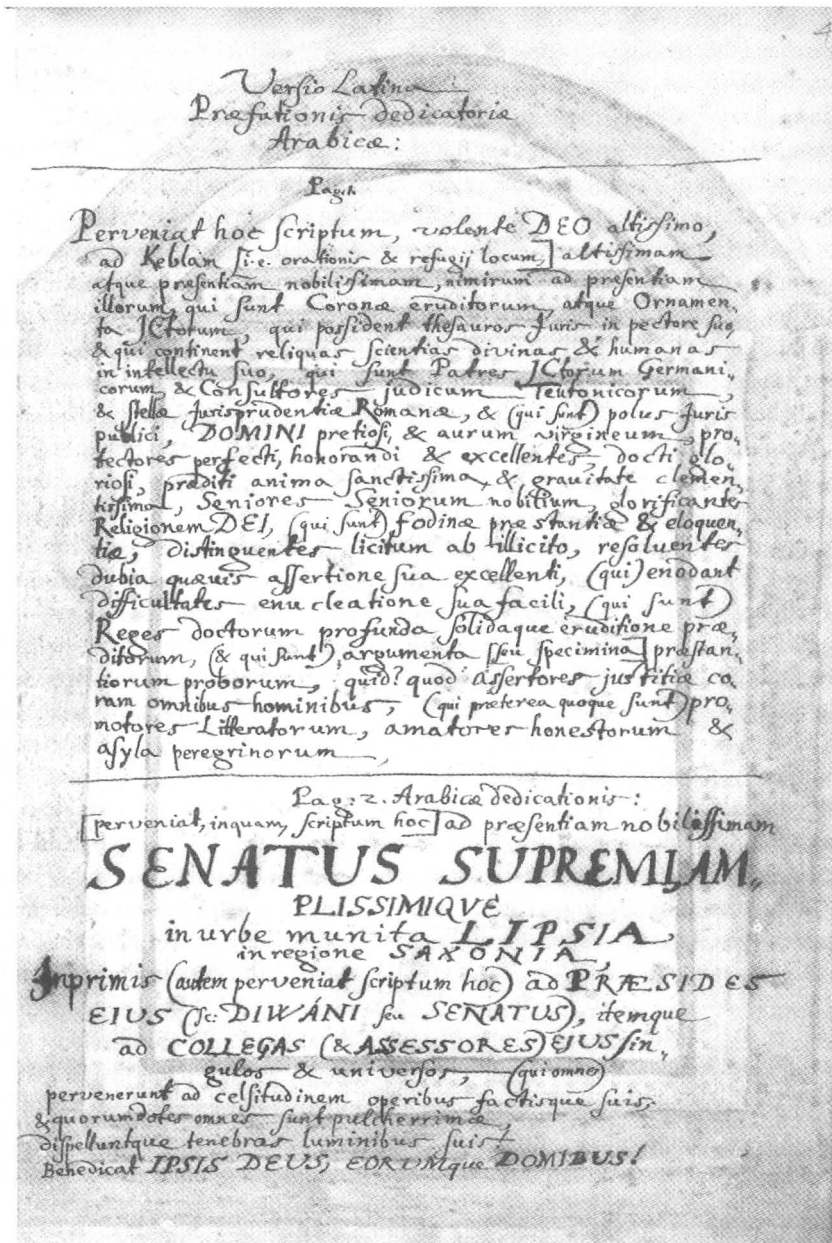 4
Versio Latina
Præfationis dedicatoriæ
Arabicæ:
Pag. 1.
Perveniat hoc scriptum, volente DEO altissimo,
ad Keblam [i.e. orationis & refugij locum,] altissimam
atque præsentiam nobilissimam, nimirum ad præsentiam
illorum, qui sunt Coronæ eruditorum, atque Ornamen-
ta ICtorum, qui possident thesauros Juris in pectore suo,
& qui continent reliquas scientias divinas & humanas
in intellectu suo, qui sunt Patres ICtorum Germani-
corum, & Consultores judicum Teutonicorum,
& stellæ Jurisprudentiæ Romanæ, & (qui sunt) polus Juris
publici, DOMINI pretiosi, & aurum virgineum, pro-
tectores perfecti, honorandi & excellentes, docti glo-
riosi, præditi anima sanctissima, & gravitate clemen-
tissima, Seniores Seniorum nobilium, glorificantes
Religionem DEI, (qui sunt) fodinæ præstantiæ & eloquen-
tiæ, distinguentes licitum ab illicito, resolventes
dubia quævis assertione sua excellenti, (qui) enodant
difficultates enucleatione sua facili, (qui sunt)
Reges doctorum profunda solidaque eruditione præ-
ditorum, (& qui sunt) argumenta [seu specimina] præstan-
tiorum proborum, quid? quod assertores justitiæ co-
ram omnibus hominibus, (qui præterea quoque sunt) pro-
motores Litteratorum, amatores honestorum &
asyla peregrinorum,
Pag: 2. Arabicæ dedicationis:
[perveniat, inquam, scriptum hoc] ad præsentiam nobilissimam
SENATUS SUPREMI, AM-
PLISSIMIQVE
in urbe munita LIPSIA,
in regione SAXONIA,
Inprimis (autem perveniat scriptum hoc) ad PRÆSIDES
EIUS (sc: DIWÁNI seu SENATUS), itemque
ad COLLEGAS (& ASSESSORES) EJUS sin-
gulos & universos, (qui omnes)
pervenerunt ad celsitudinem operibus factisque suis,
& quorum dotes omnes sunt pulcherrimæ,
dispelluntque tenebras luminibus suis.
Benedicat IPSIS DEUS, EORUMque DOMIBUS!